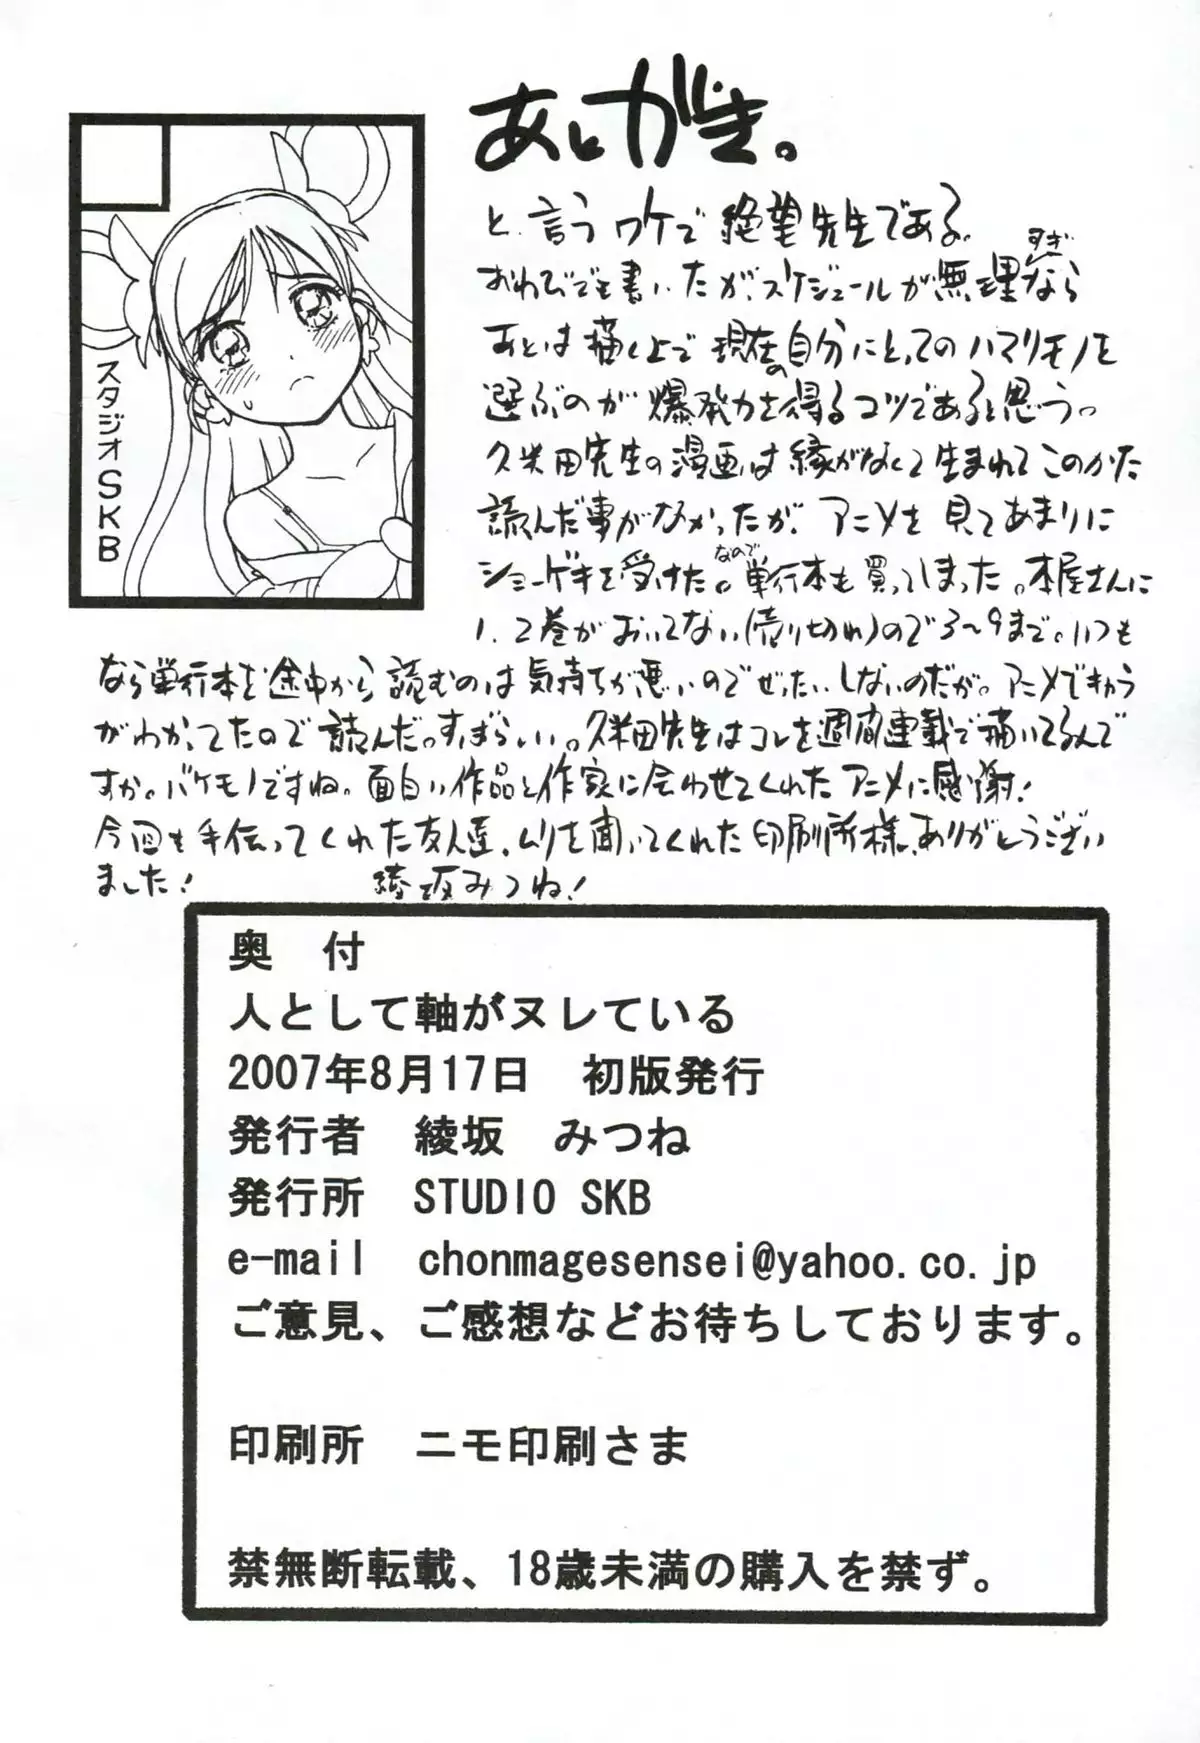 あとがき。
スタジオSKB
と、言うワケで絶望先生である。
おわびでも書いたが、スケジュールが無理すぎなら
あとは描く上で現在の自分にとってのハマリモノを
選ぶのが爆発力を得るコツであると思う。
久米田先生の漫画は縁がなくて生まれてこのかた
読んだ事がなかったが、アニメを見てあまりに
ショーゲキを受けた。なので単行本も買ってしまった。本屋さんに
1、2巻がおいてない(売り切れ)ので3~9まで。いつも
なら単行本を途中から読むのは気持ちが悪いのでぜったいしないのだが。アニメで
がわかってたので読んだ。すばらしい。久米田先生はコレを週間連載で描いてるんで
すか。バケモノですね。面白い作品と作家に会わせてくれたアニメに感謝!
今回も手伝ってくれた友人達、ムリを聞いてくれた印刷所様、ありがとうござい
ました! 綾坂みつね!
奥　付
人として軸がヌレている
2007年8月17日　初版発行
発行者　綾坂　みつね
発行所　STUDIO SKB
e-mail　chonmagesensei@yahoo.co.jp
ご意見、ご感想などお待ちしております。
印刷所　ニモ印刷さま
禁無断転載、18歳未満の購入を禁ず。